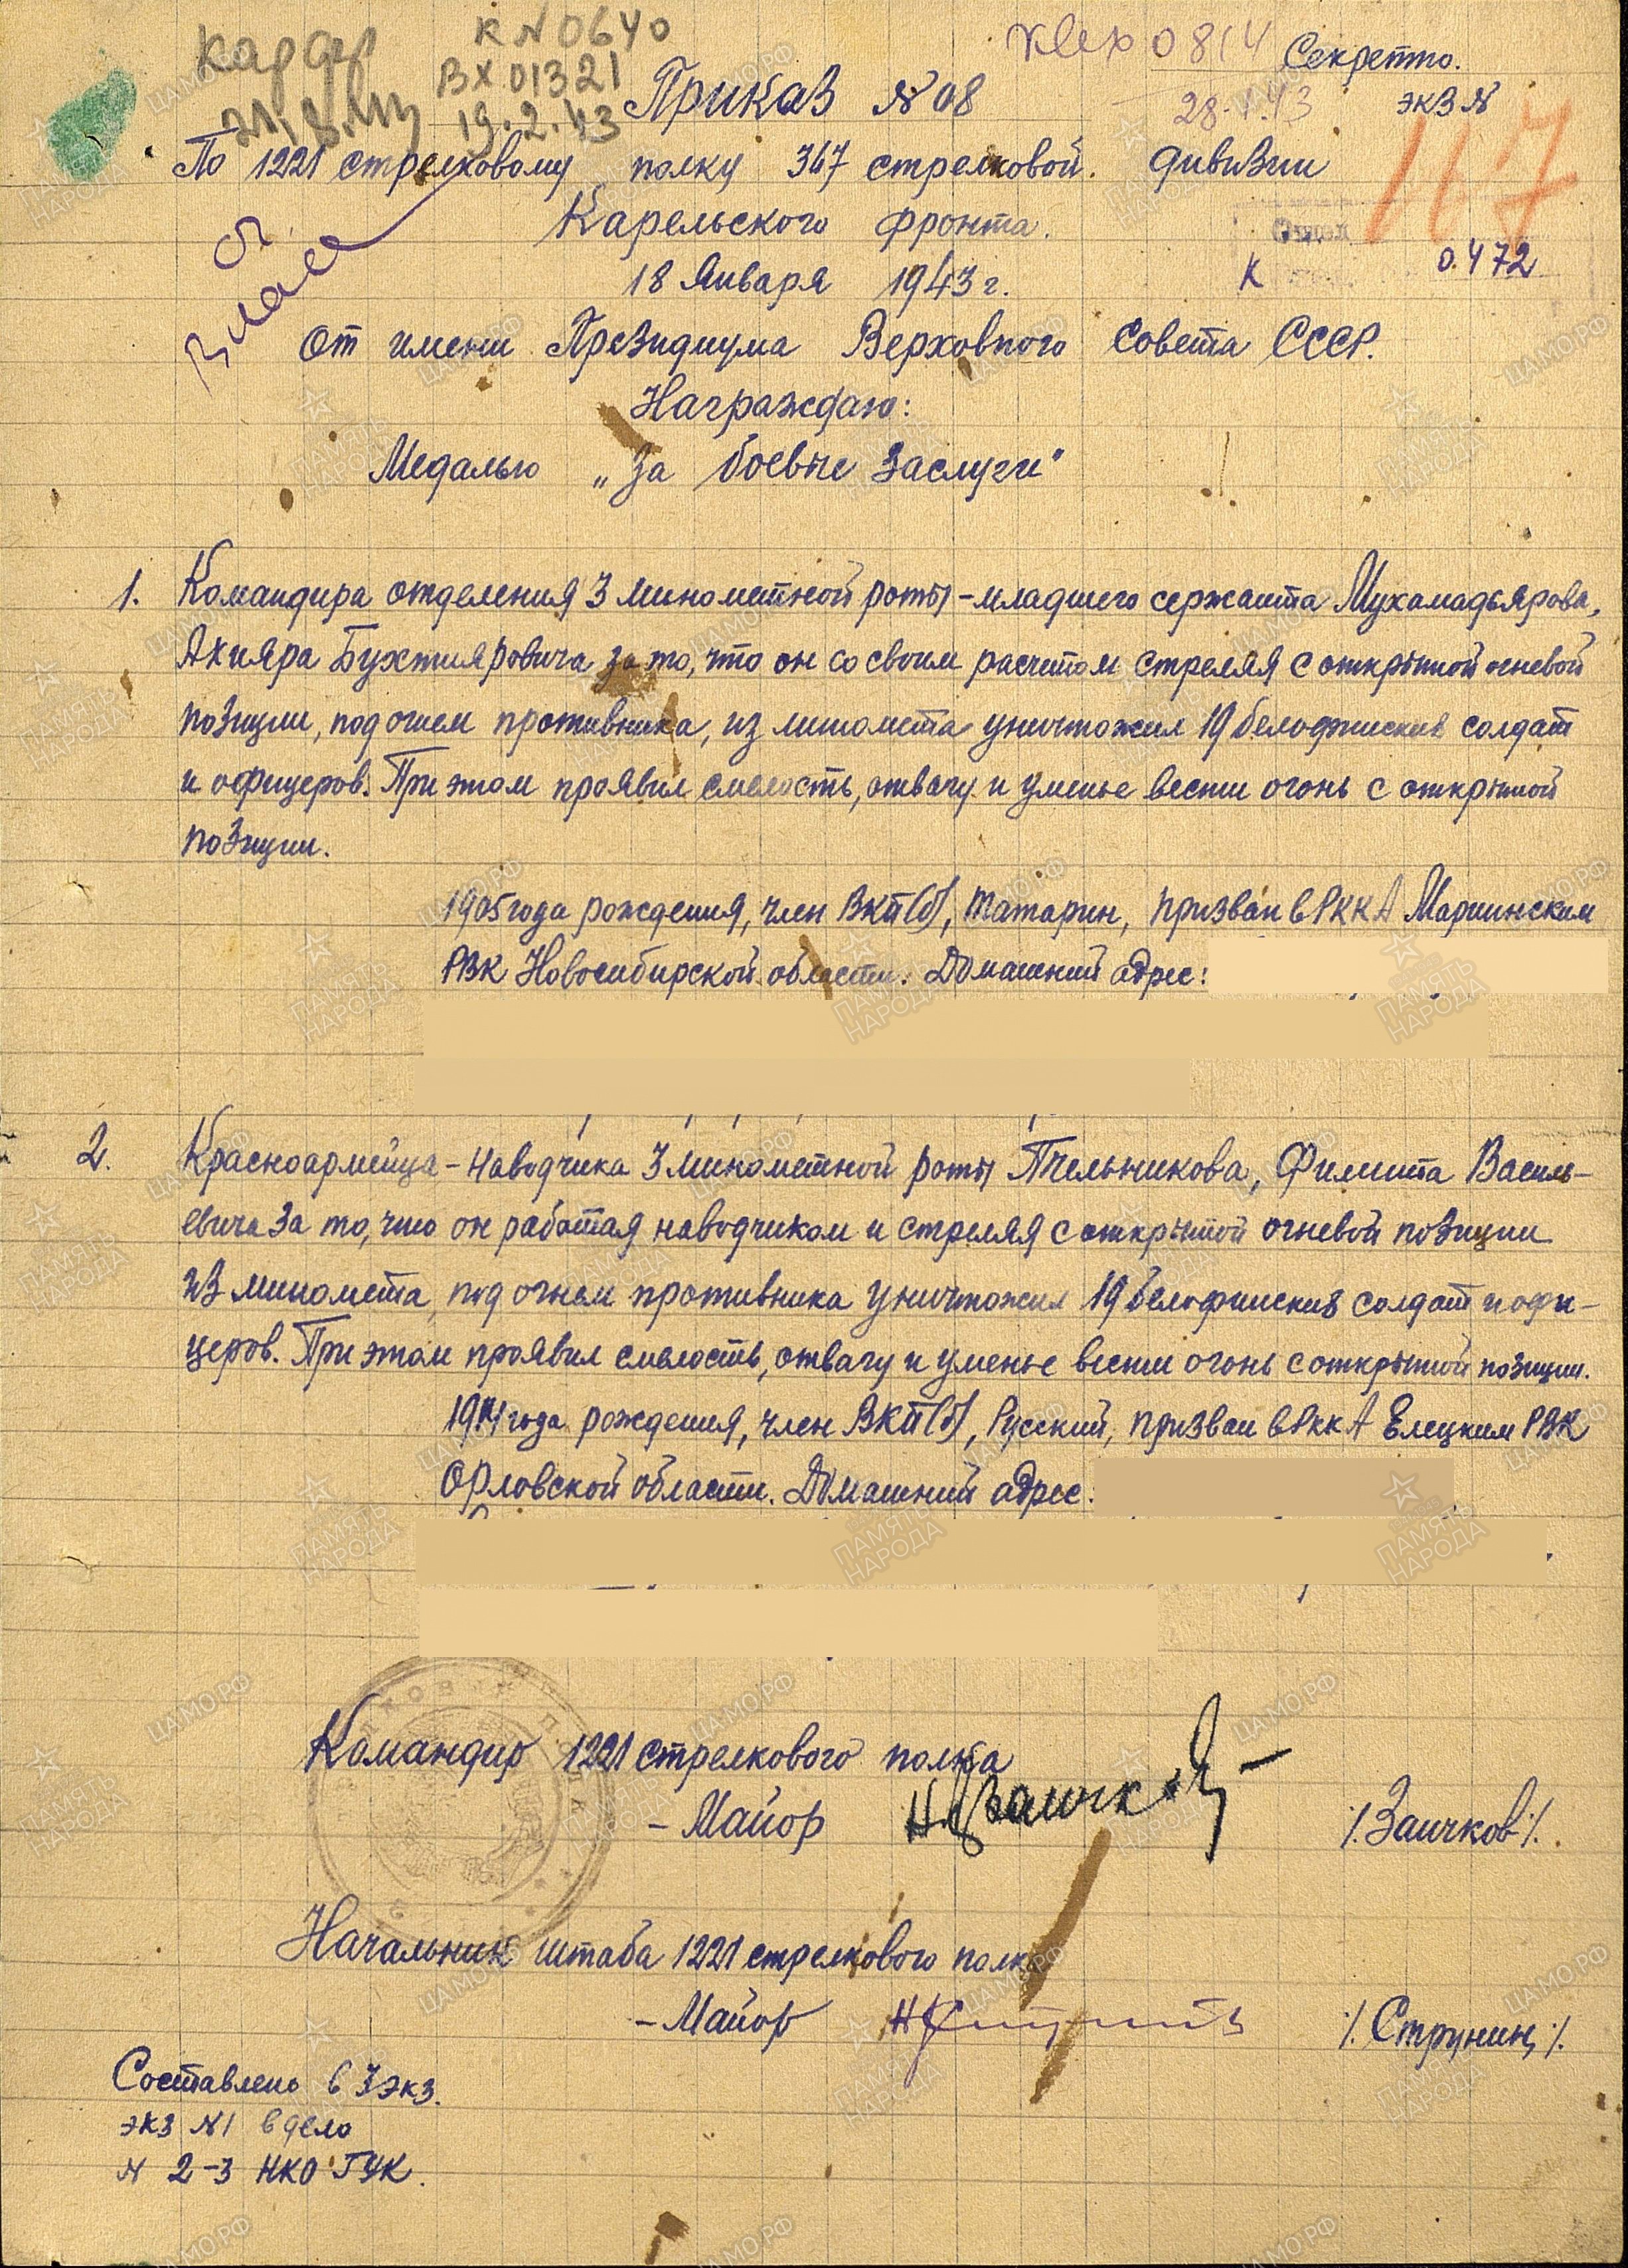 К№0640
Вх 01321
19.2.43
0814
Секретно.
Приказ № 08
28.1.43
экз №
По 1221 стрелковому полку 367 стрелковой дивизии
117
Карельского фронта.
Отдел
К 0.472
18 Января 1943 г.
От имени Президиума Верховного Совета СССР.
Награждаю:
Медалью „За боевые заслуги"
1. Командира отделения 3 минометной роты – младшего сержанта Мухамадьярова,
Ахияра Бухтияровича за то, что он со своим расчетом стреляя с открытой огневой
позиции, под огнем противника, из миномета уничтожил 19 белофинских солдат
и офицеров. При этом проявил смелость, отвагу и уменье вести огонь с открытой
позиции.
1905 года рождения, член ВКП(б), Татарин, призван в РККА Мариинским
РВК Новосибирской области. Домашний адрес:
2. Красноармейца – наводчика 3 минометной роты Пчельникова, Филиппа Василь-
евича за то, что он работая наводчиком и стреляя с открытой огневой позиции
из миномета, под огнем противника уничтожил 19 белофинских солдат и офи-
церов. При этом проявил смелость, отвагу и уменье вести огонь с открытой позиции.
года рождения, член ВКП(б), Русский, призван в РККА Елецким РВК
Орловской области. Домашний адрес:
Командир 1221 стрелкового полка
– Майор /.Заичков/.
Начальник штаба 1221 стрелкового полка
– Майор /.Струнин/.
Составлено в 3 экз.
экз №1 в дело
№ 2–3 НКО ГУК.